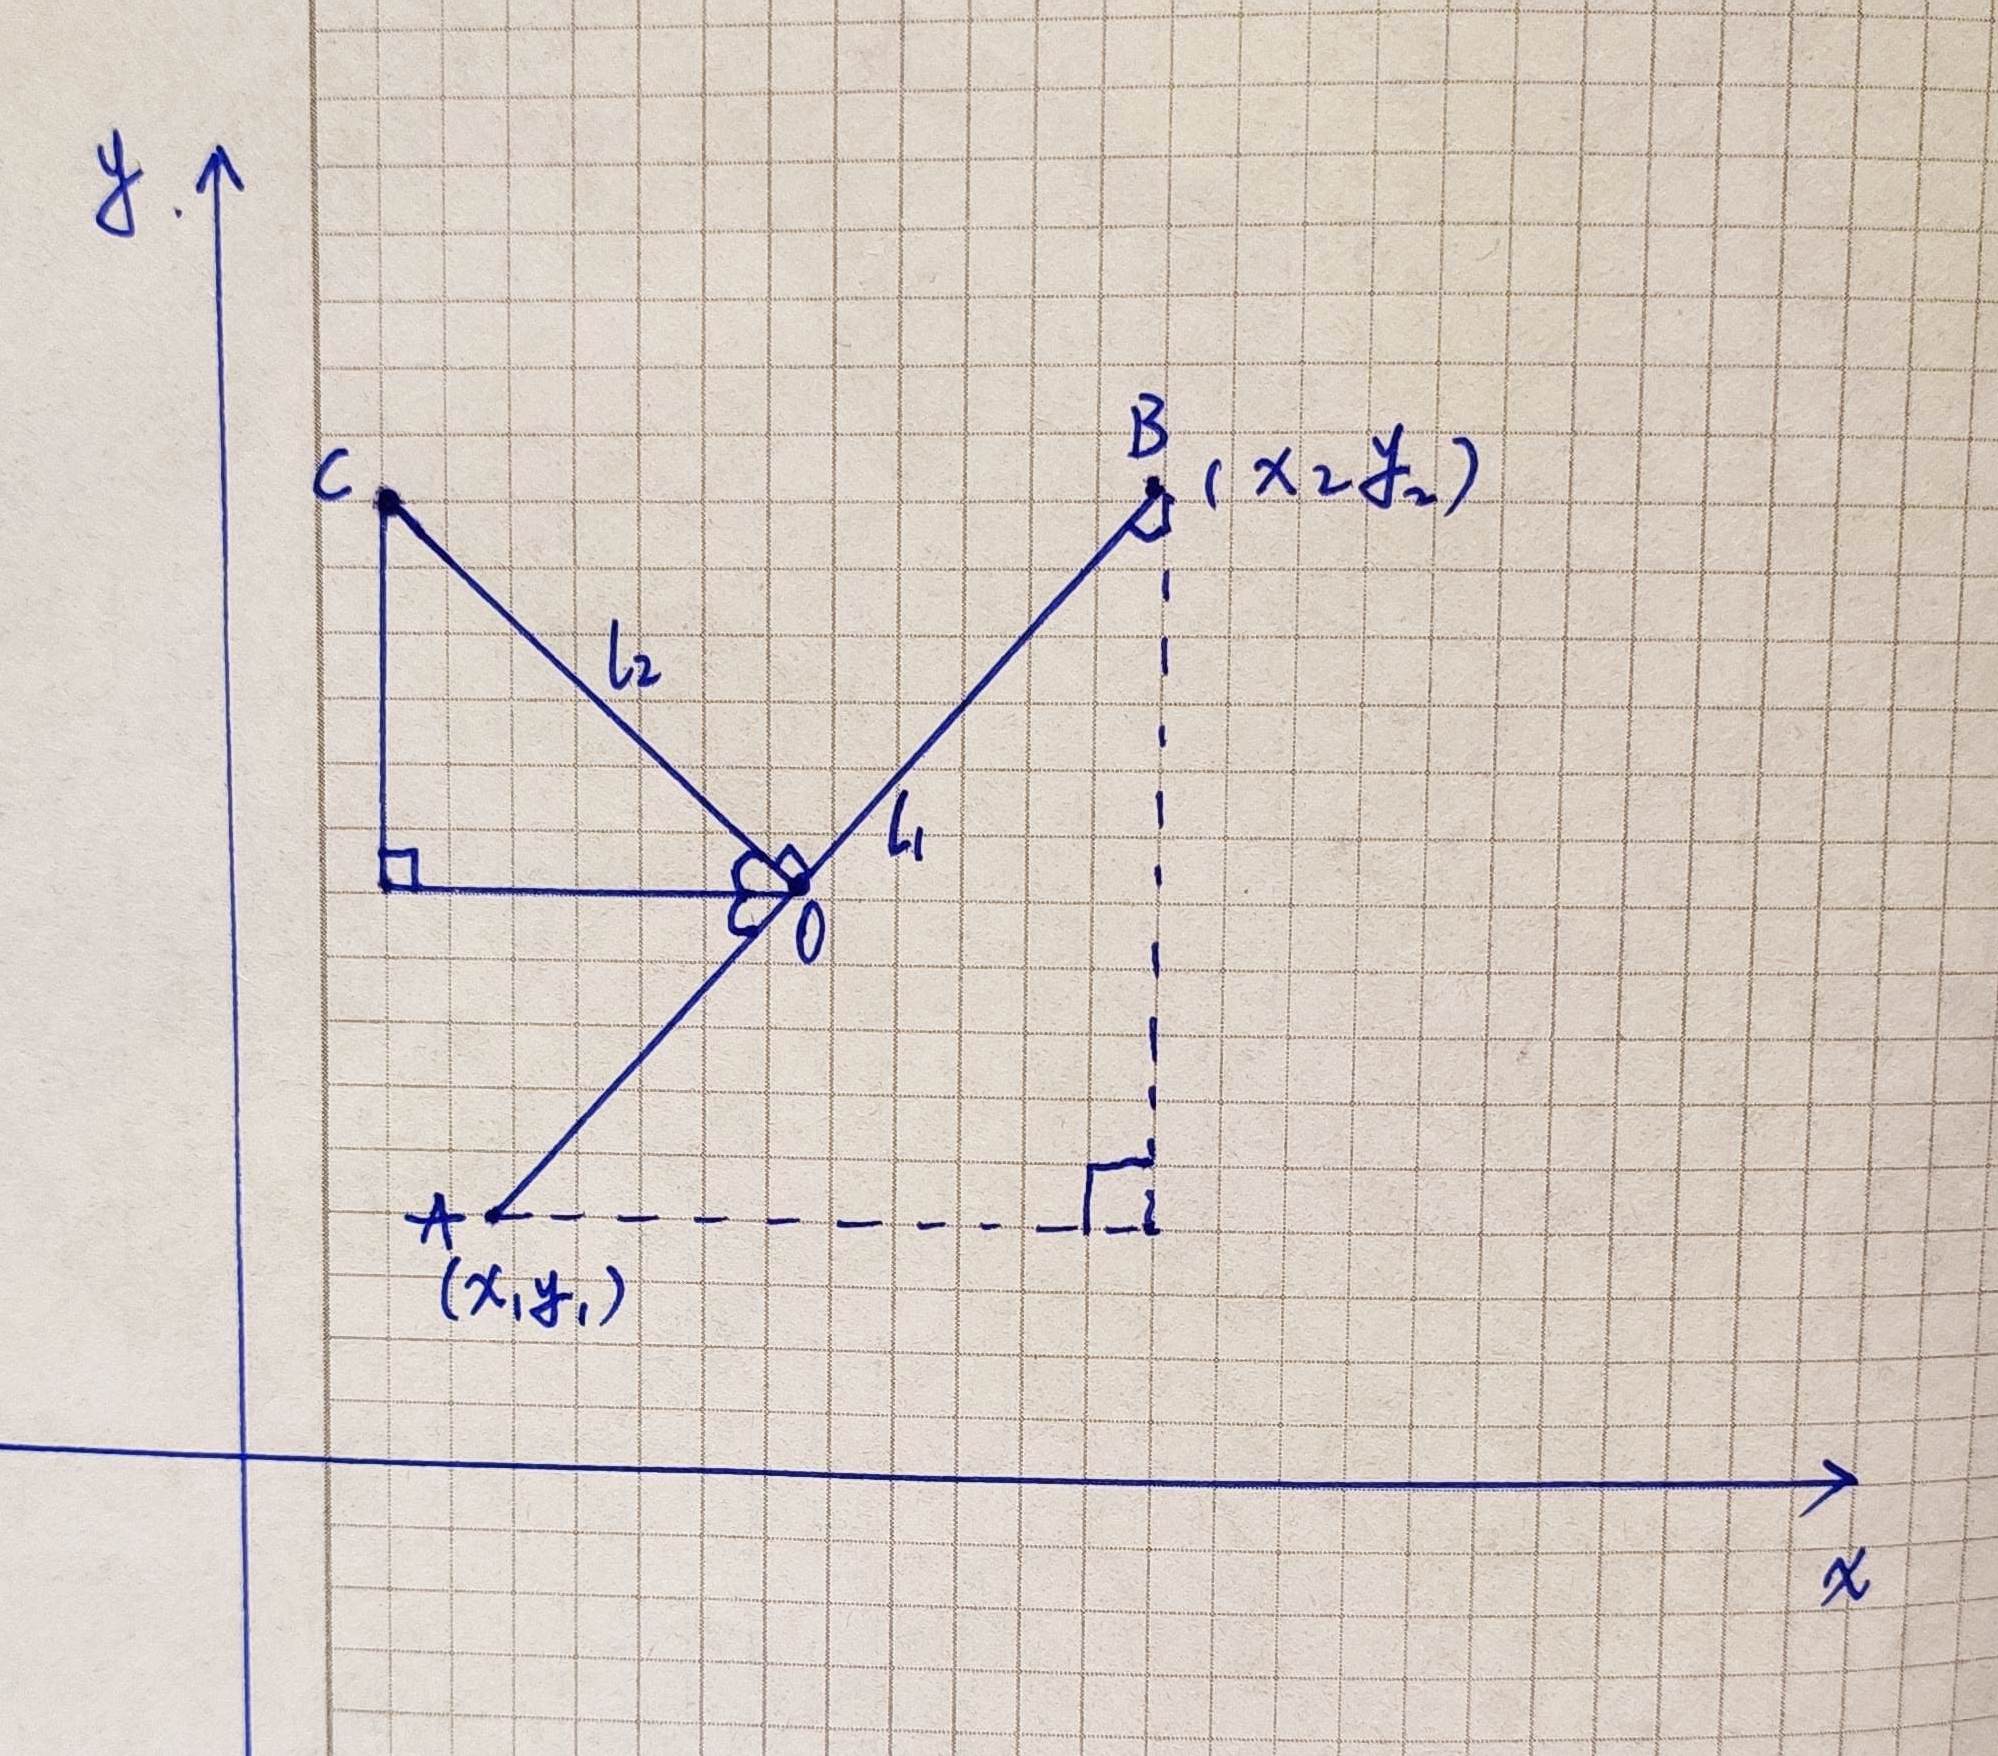 y
B
C
(x₂ y₂)
l₂
l₁
O
A
(x₁ y₁)
x